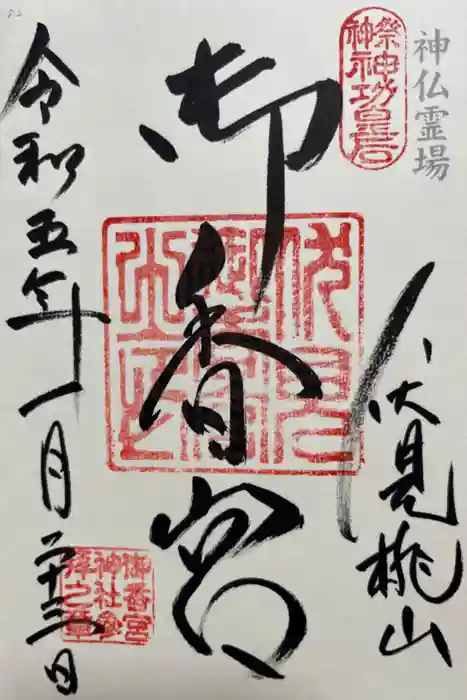 神仏霊場
祭神
神功皇后
伏見桃山
御香宮
令和五年一月二十三日
御香宮
神社参
拝之章